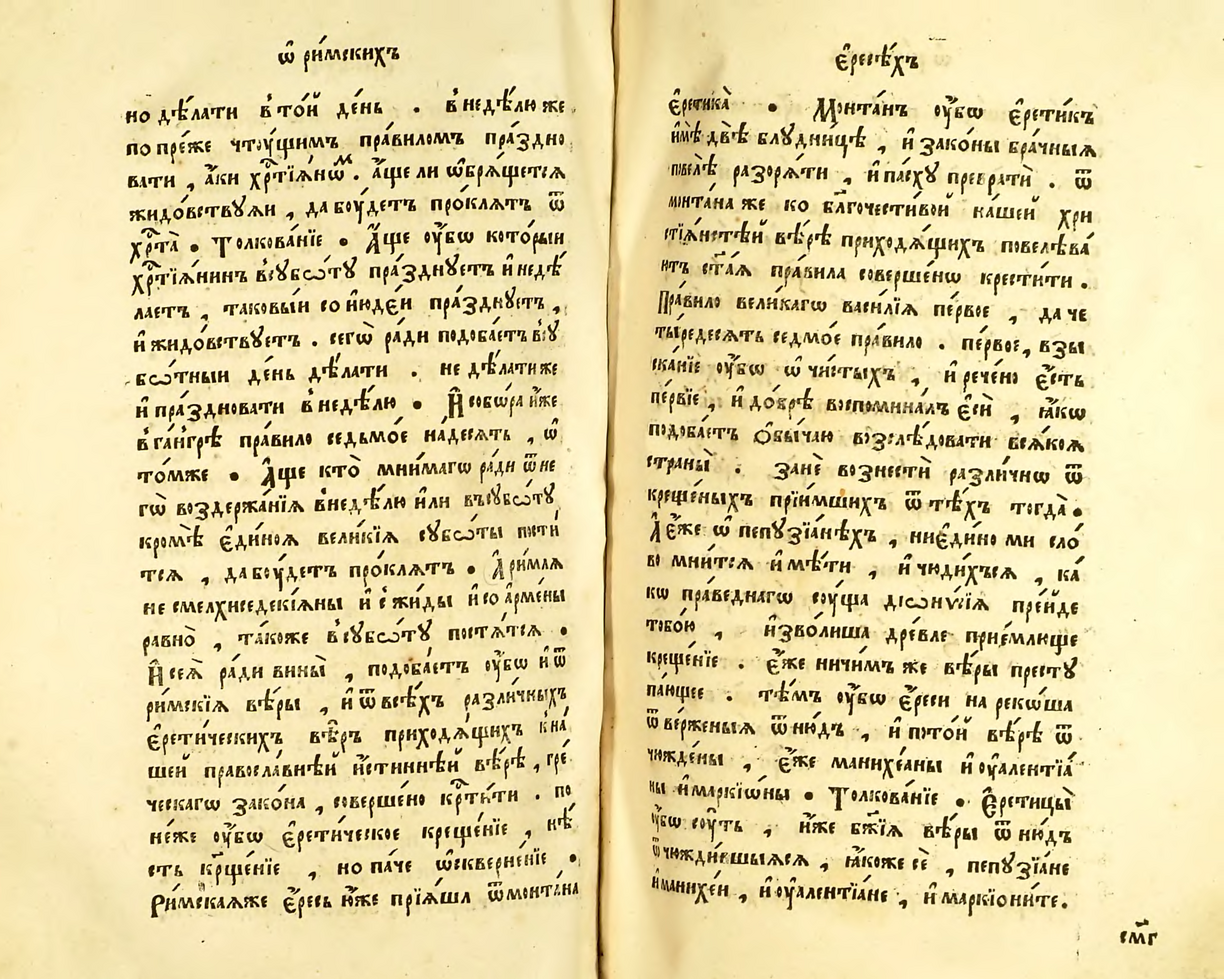 ѡ҆ ри́мскихъ
но дѣ́лати в̾то́й де́нь . в̾недѣ́лю же
по пре́же чтꙋ́щимъ пра́виломъ пра́здно
вати , а҆́ки хр҇тїѧ́нѡм . а҆́ще ли ѡ҆брѧ́щетсѧ
жидо́вствꙋѧи , да бꙋ́детъ про́клѧтъ ѿ
хр҇та̀ • Толкова́нїе • А҆́ще ᲂу҆́бѡ кото́рыи
хр҇тїѧ́нинъ в̾сꙋбѡ́тꙋ пра́зднꙋетъ и҆ недѣ́
лаетъ , таковы́и со и҆юде́и пра́зднꙋетъ ,
и҆ жидо́вствꙋетъ . сегѡ̀ ра́ди подоба́етъ в̾сꙋ
бѡ́тныи де́нь дѣ́лати . не дѣ́лати же
и҆ пра́здновати в̾недѣ́лю • И҆ собѡ́ра и҆́же
в̾га́нгрѣ пра́вило седьмо́е на́десѧть , ѡ҆
то́мже • А҆́ще кто̀ мни́магѡ ра́ди ѿ не
гѡ̀ воздержа́нїѧ в̾недѣ́лю и҆ли въсꙋбѡ́тꙋ
кромѣ̀ є҆ди́ноѧ вели́кїѧ сꙋбѡ́ты пости́
тсѧ , да бꙋ́детъ про́клѧтъ • А҆ ри́млѧ
не смелхиседекїѧ́ны и҆ с̾ жи́ды и҆ со а҆рме́ны
равно̀ , та́коже в̾сꙋбѡ́тꙋ постѧ́тсѧ •
И҆ сеѧ̀ ра́ди вины̀ , подоба́етъ ᲂу҆́бѡ и҆ ѿ
ри́мскїѧ вѣ́ры , и҆ ѿ всѣ́хъ разли́чныхъ
є҆рети́ческихъ вѣ́ръ приходѧ́щихъ к̾на́
шей правосла́внѣй и҆́стиннѣй вѣ́рѣ , гре́
ческагѡ зако́на , соверше́но кр҇ти́ти . по
не́же ᲂу҆́бѡ є҆рети́ческое креще́нїе , нѣ́
сть кр҇ще́нїе , но па́че ѡ҆скверне́нїе •
Ри́мскаѧже є҆́ресь и҆́же прїѧ́ша ѿ монта́на
є҆ресѣ́хъ
є҆ретика̀ • Монта́нъ ᲂу҆́бѡ є҆рети́къ
и҆мѣ̀ двѣ̀ блꙋдни́цѣ , и҆ зако́ны бра́чныѧ
повелѣ̀ разорѧ́ти , и҆ па́схꙋ превратѝ . ѿ
монта́на же ко бл҃гочести́вой на́шей хри
стїѧ́нстѣй вѣ́рѣ приходѧ́щихъ повелѣва́
итъ ст҃а́ѧ пра́вила соверше́нѡ крести́ти .
Пра́вило вели́кагѡ васи́лїѧ пе́рвое , да че
ты́редесѧтъ седмо́е пра́вило . пе́рвое, взы
ска́нїе ᲂу҆́бѡ ѡ҆ чи́стыхъ , и҆ рече́но є҆́сть
пе́рвїе , и҆ до́брѣ воспомина́лъ є҆сѝ , ꙗ҆́кѡ
подоба́етъ ѻ҆бы́чаю во́з̾слѣдовати всѧ́коѧ
страны̀ . занѐ вознестѝ разли́чнѡ ѿ
креще́ныхъ прїи́мшихъ ѿ тѣ́хъ тогда̀ •
А҆ є҆́же ѡ҆ пепꙋзїа́нѣхъ , ниє҆ди́но ми сло́
во мни́тсѧ и҆мѣ́ти , и҆ чюди́хъсѧ , ка́
кѡ пра́веднагѡ сꙋ́ща дїѡни́сїѧ пре́йде
тобо́ю , и҆зво́лиша дре́вле прие́млюще
креще́нїе . є҆́же ничи́мъ же вѣ́ры престꙋ
па́ющее . тѣ́мъ ᲂу҆́бѡ є҆́реси на реко́ша
ѿве́рженыѧ ѿню́дъ , и҆ по то́й вѣ́рѣ ѿ
чюжде́ны , є҆́же манихе́аны и҆ ᲂу҆алентїа́
ны и҆ маркїѡ́ны • Толкова́нїе • Е҆ретицы̀
ᲂу҆́бѡ сꙋ́ть , и҆́же бж҃їѧ вѣ́ры ѿню́дъ
ѿчюжди́вшыѧсѧ , ꙗ҆́коже сѐ , пепꙋзїа́не
и҆ манихе́и , и҆ ᲂу҆алентїа́не , и҆ маркїони́те .
сл҃г